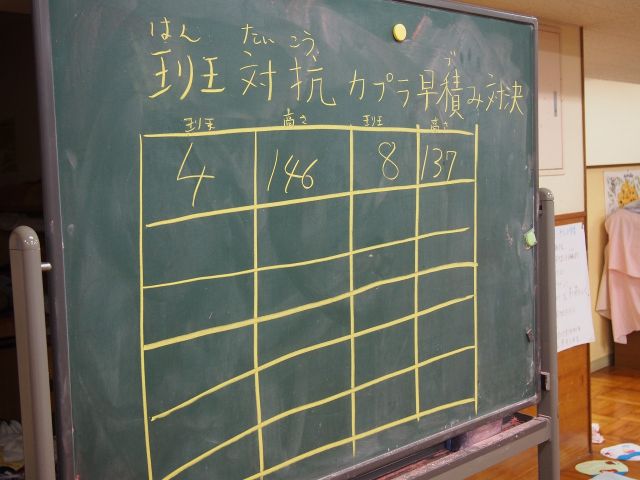 はん たい こう づ
班 対 抗 カプラ早積み対決
班 高さ 班 高さ
4 146 8 137